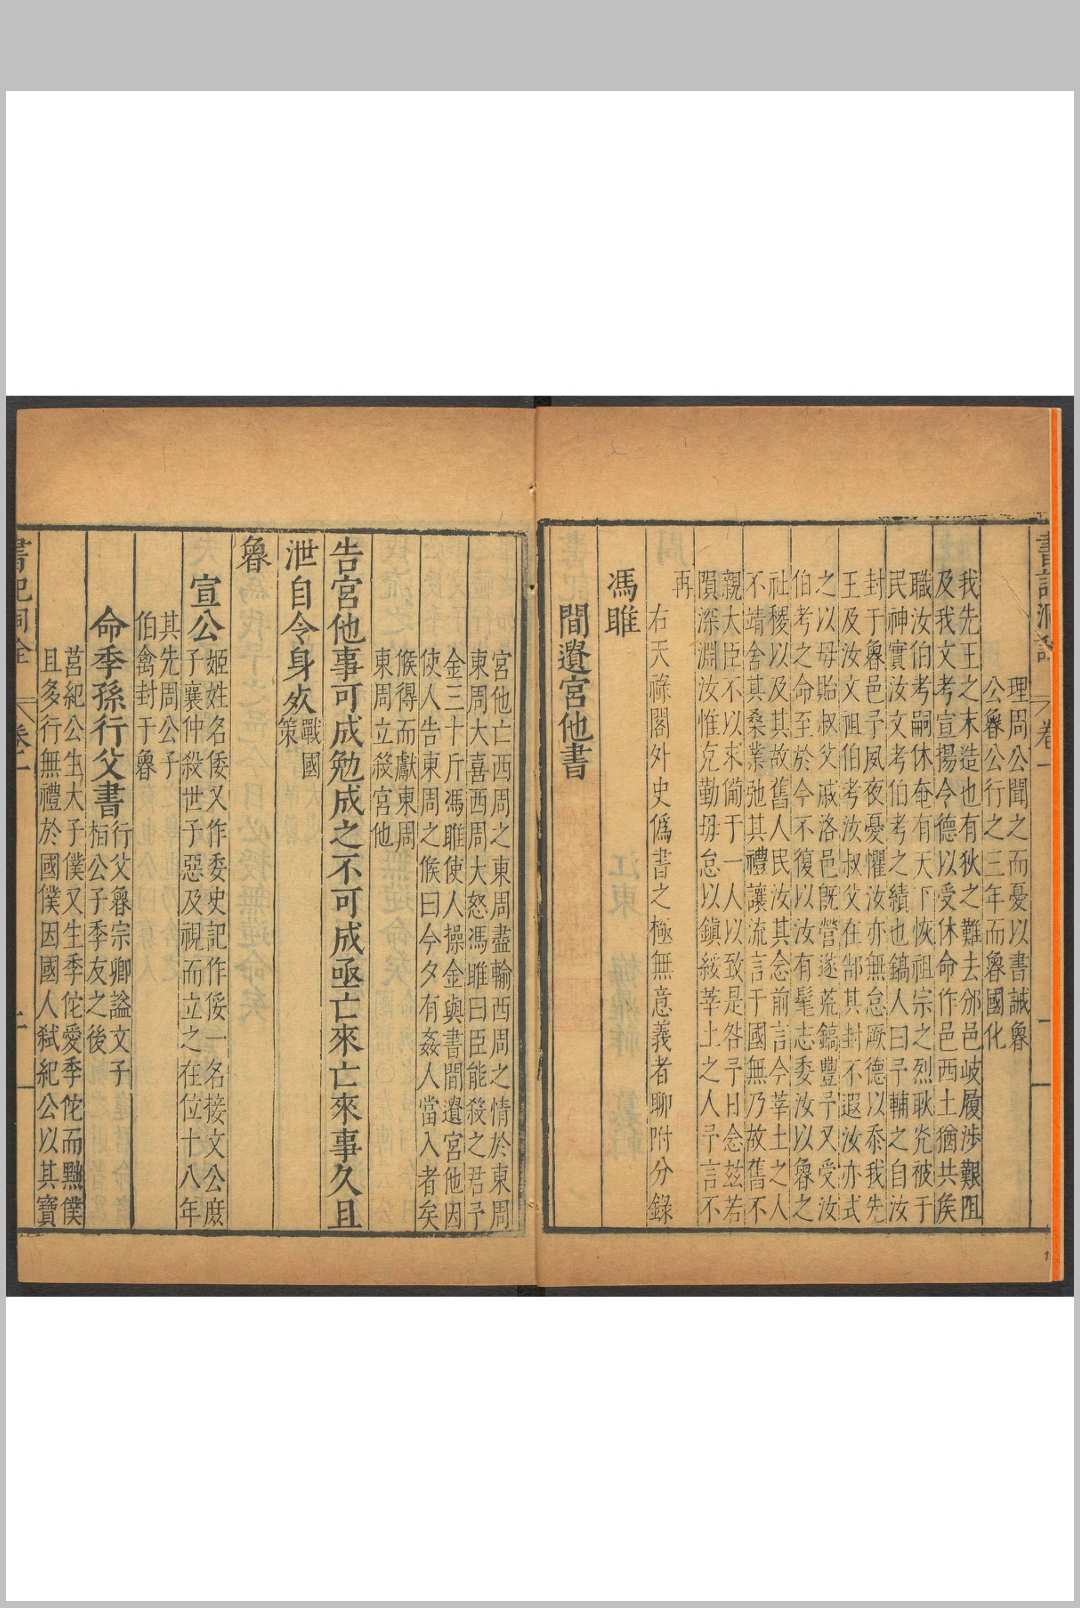 理周公聞之而憂以書誡魯
公魯公行之三年而魯國化
我先王之末造也有狄之難去邠邑岐履涉艱阻
及我文考宣揚令德以受休命作邑西土猶共矦
職汝伯考嗣休奄有天下恢祖宗之烈耿灮被于
民神實汝文考伯考之績也鎬人曰予輔之自汝
封于魯邑予夙夜憂懼汝亦無怠厥德以忝我先
王及汝文祖伯考汝叔父在鄗其封不遐汝亦式
之以毋貽叔父戚洛邑既營遂荒鎬豐予又受汝
伯考之命至於今不復以汝有髦志委汝以魯之
社稷以及其故舊人民汝其念前言今莘土之人
不靖舍其桑業弛其禮讓流言于國無乃故舊不
親大臣不以求備于一人以致是咎予日念茲若
隕深淵汝惟克勤毋怠以鎮綏莘土之人予言不
再
右天祿閣外史僞書之極無意義者聊附分錄
馮睢
間遺宮他書
宮他亡西周之東周盡輸西周之情於東周
東周大喜西周大怒馮睢曰臣能殺之君予
金三十斤馮睢使人操金與書間遺宮他因
使人告東周之候曰今夕有姦人當入者矣
候得而獻東周
東周立殺宮他
告宮他事可成勉成之不可成亟亡來亡來事久且
泄自令身死
戰國
策
魯
宣公
姬姓名倭又作委史記作俀一名接文公庶
子襄仲殺世子惡及視而立之在位十八年
其先周公子
伯禽封于魯
命季孫行父書
行父魯宗卿謚文子
桓公子季友之後
莒紀公生大子僕又生季佗愛季佗而黜僕
且多行無禮於國僕因國人弒紀公以其寶
書記洞詮
卷一